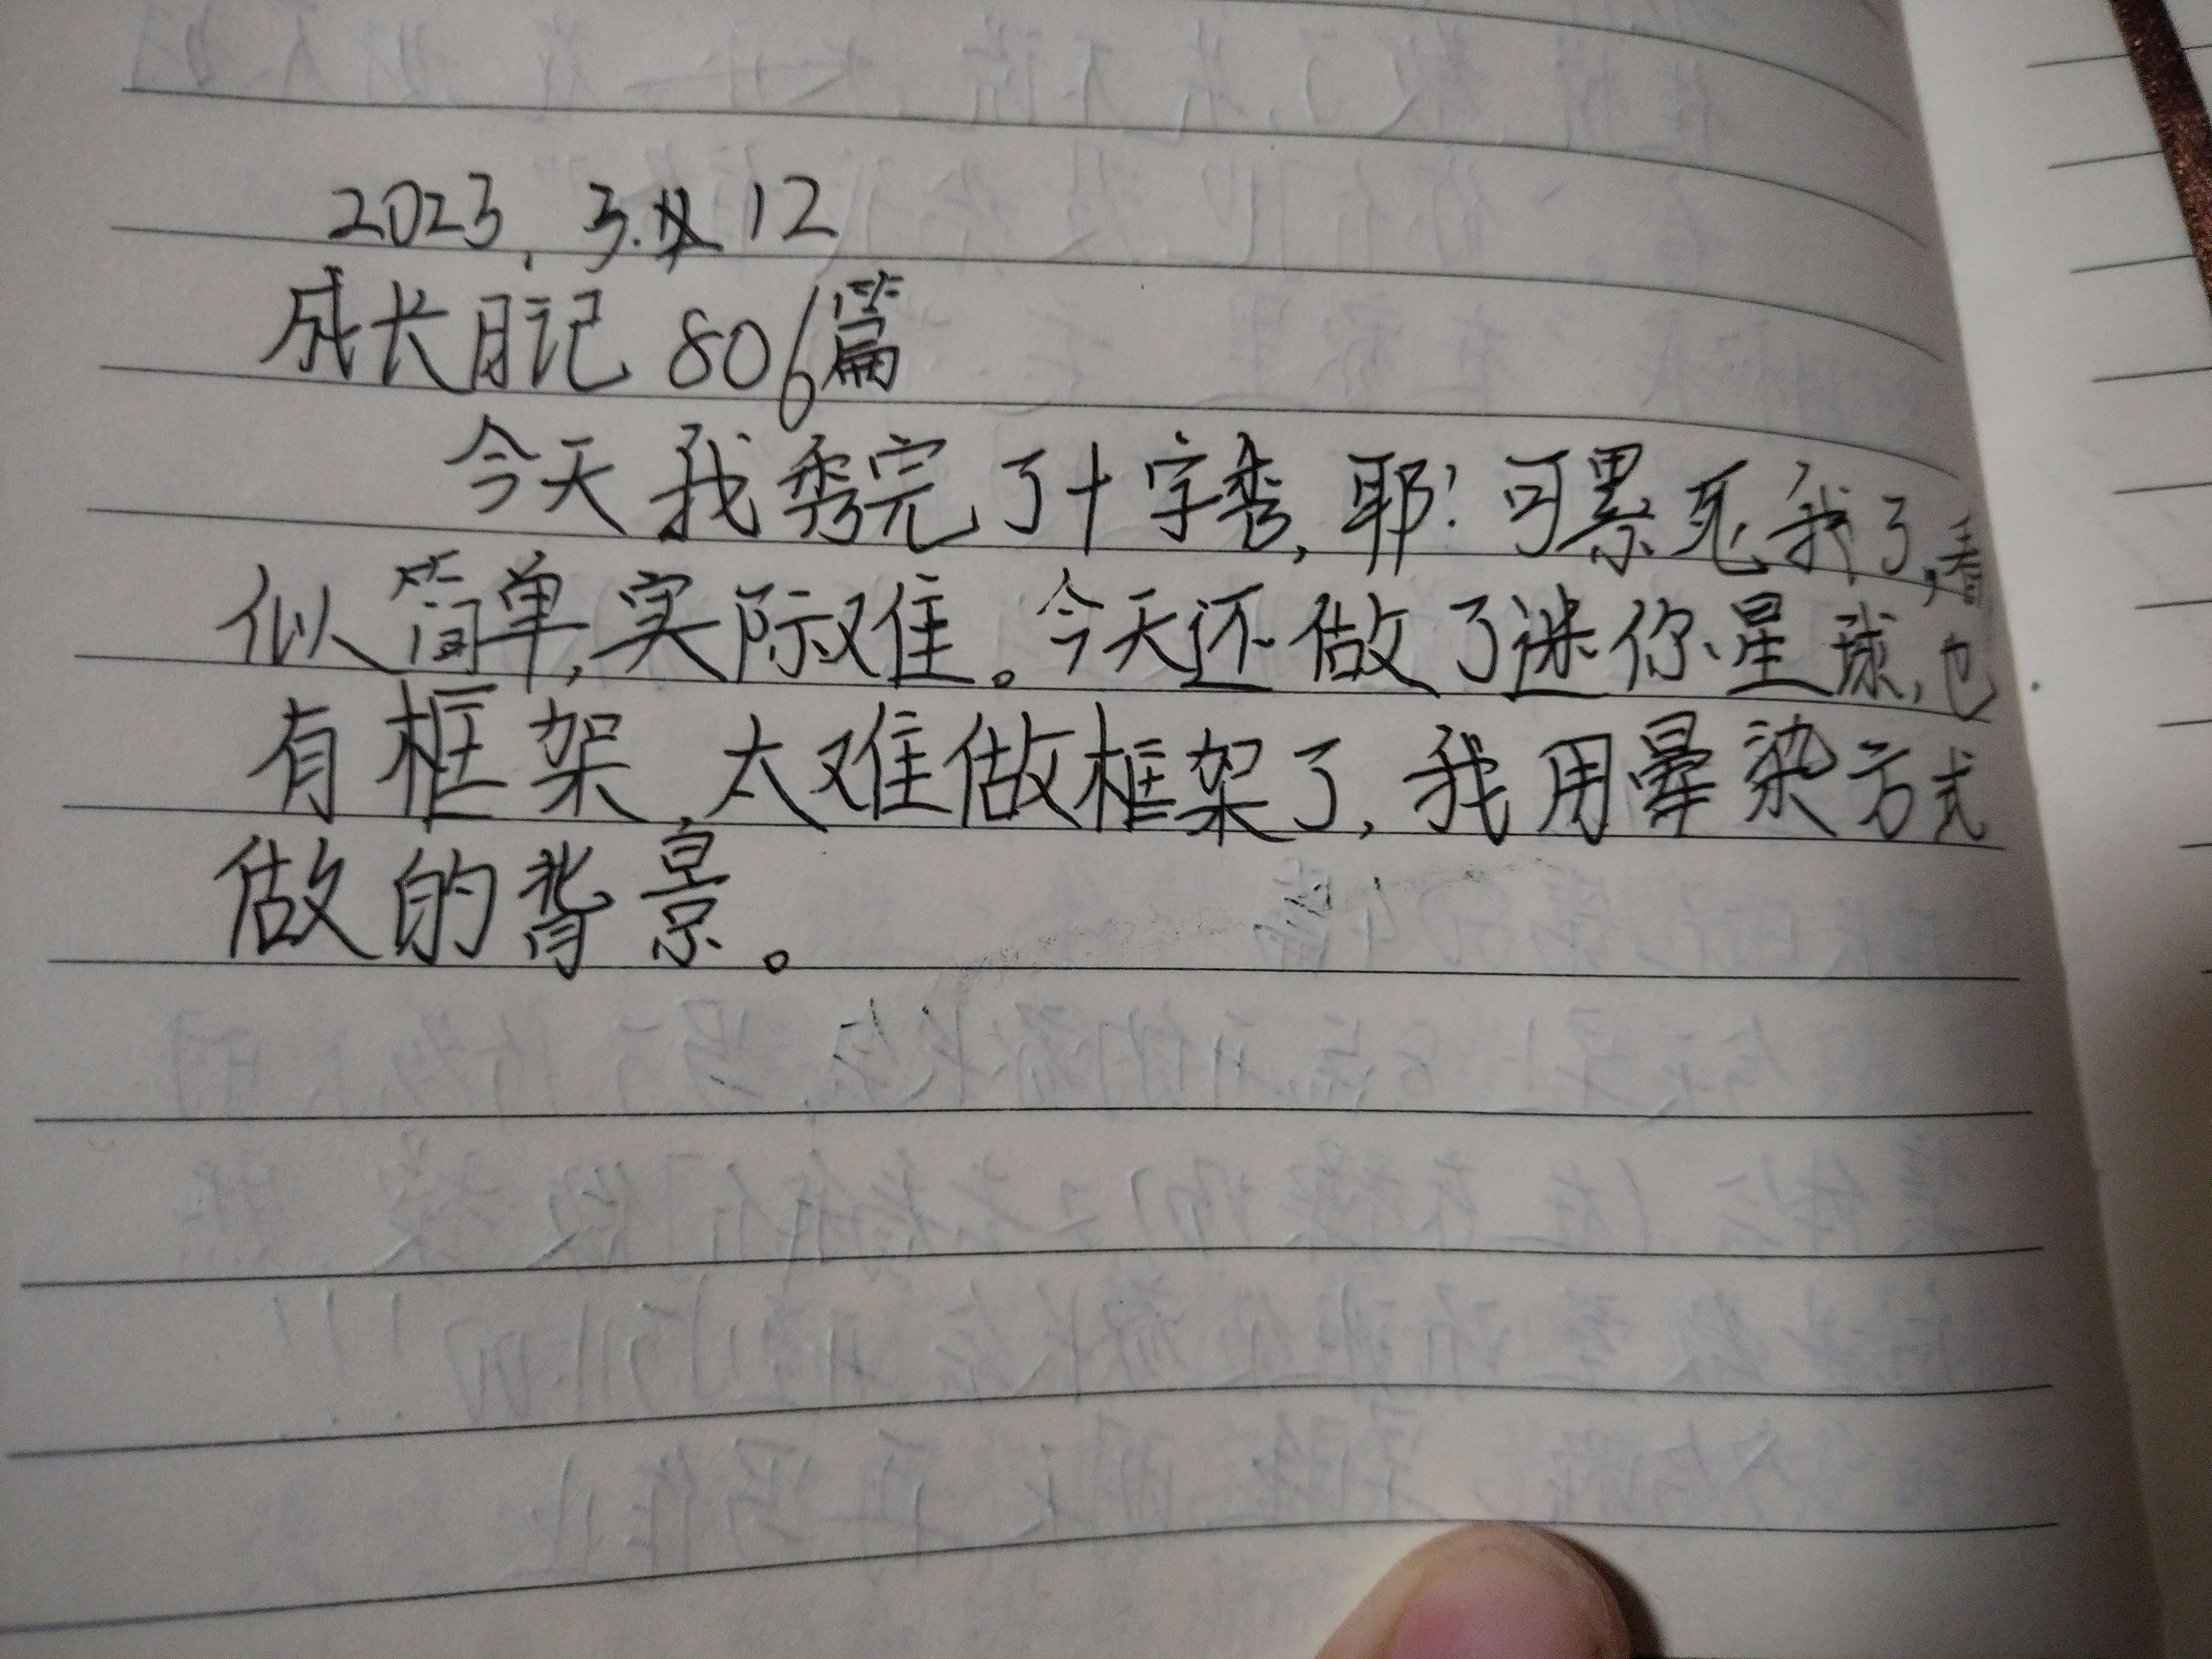 2023.3.12
成长日记 806篇
今天我秀完了十字秀,耶!可累死我了,看
似简单,实际难。今天还做了迷你星球,也
有框架,太难做框架了,我用晕染方式
做的背景。